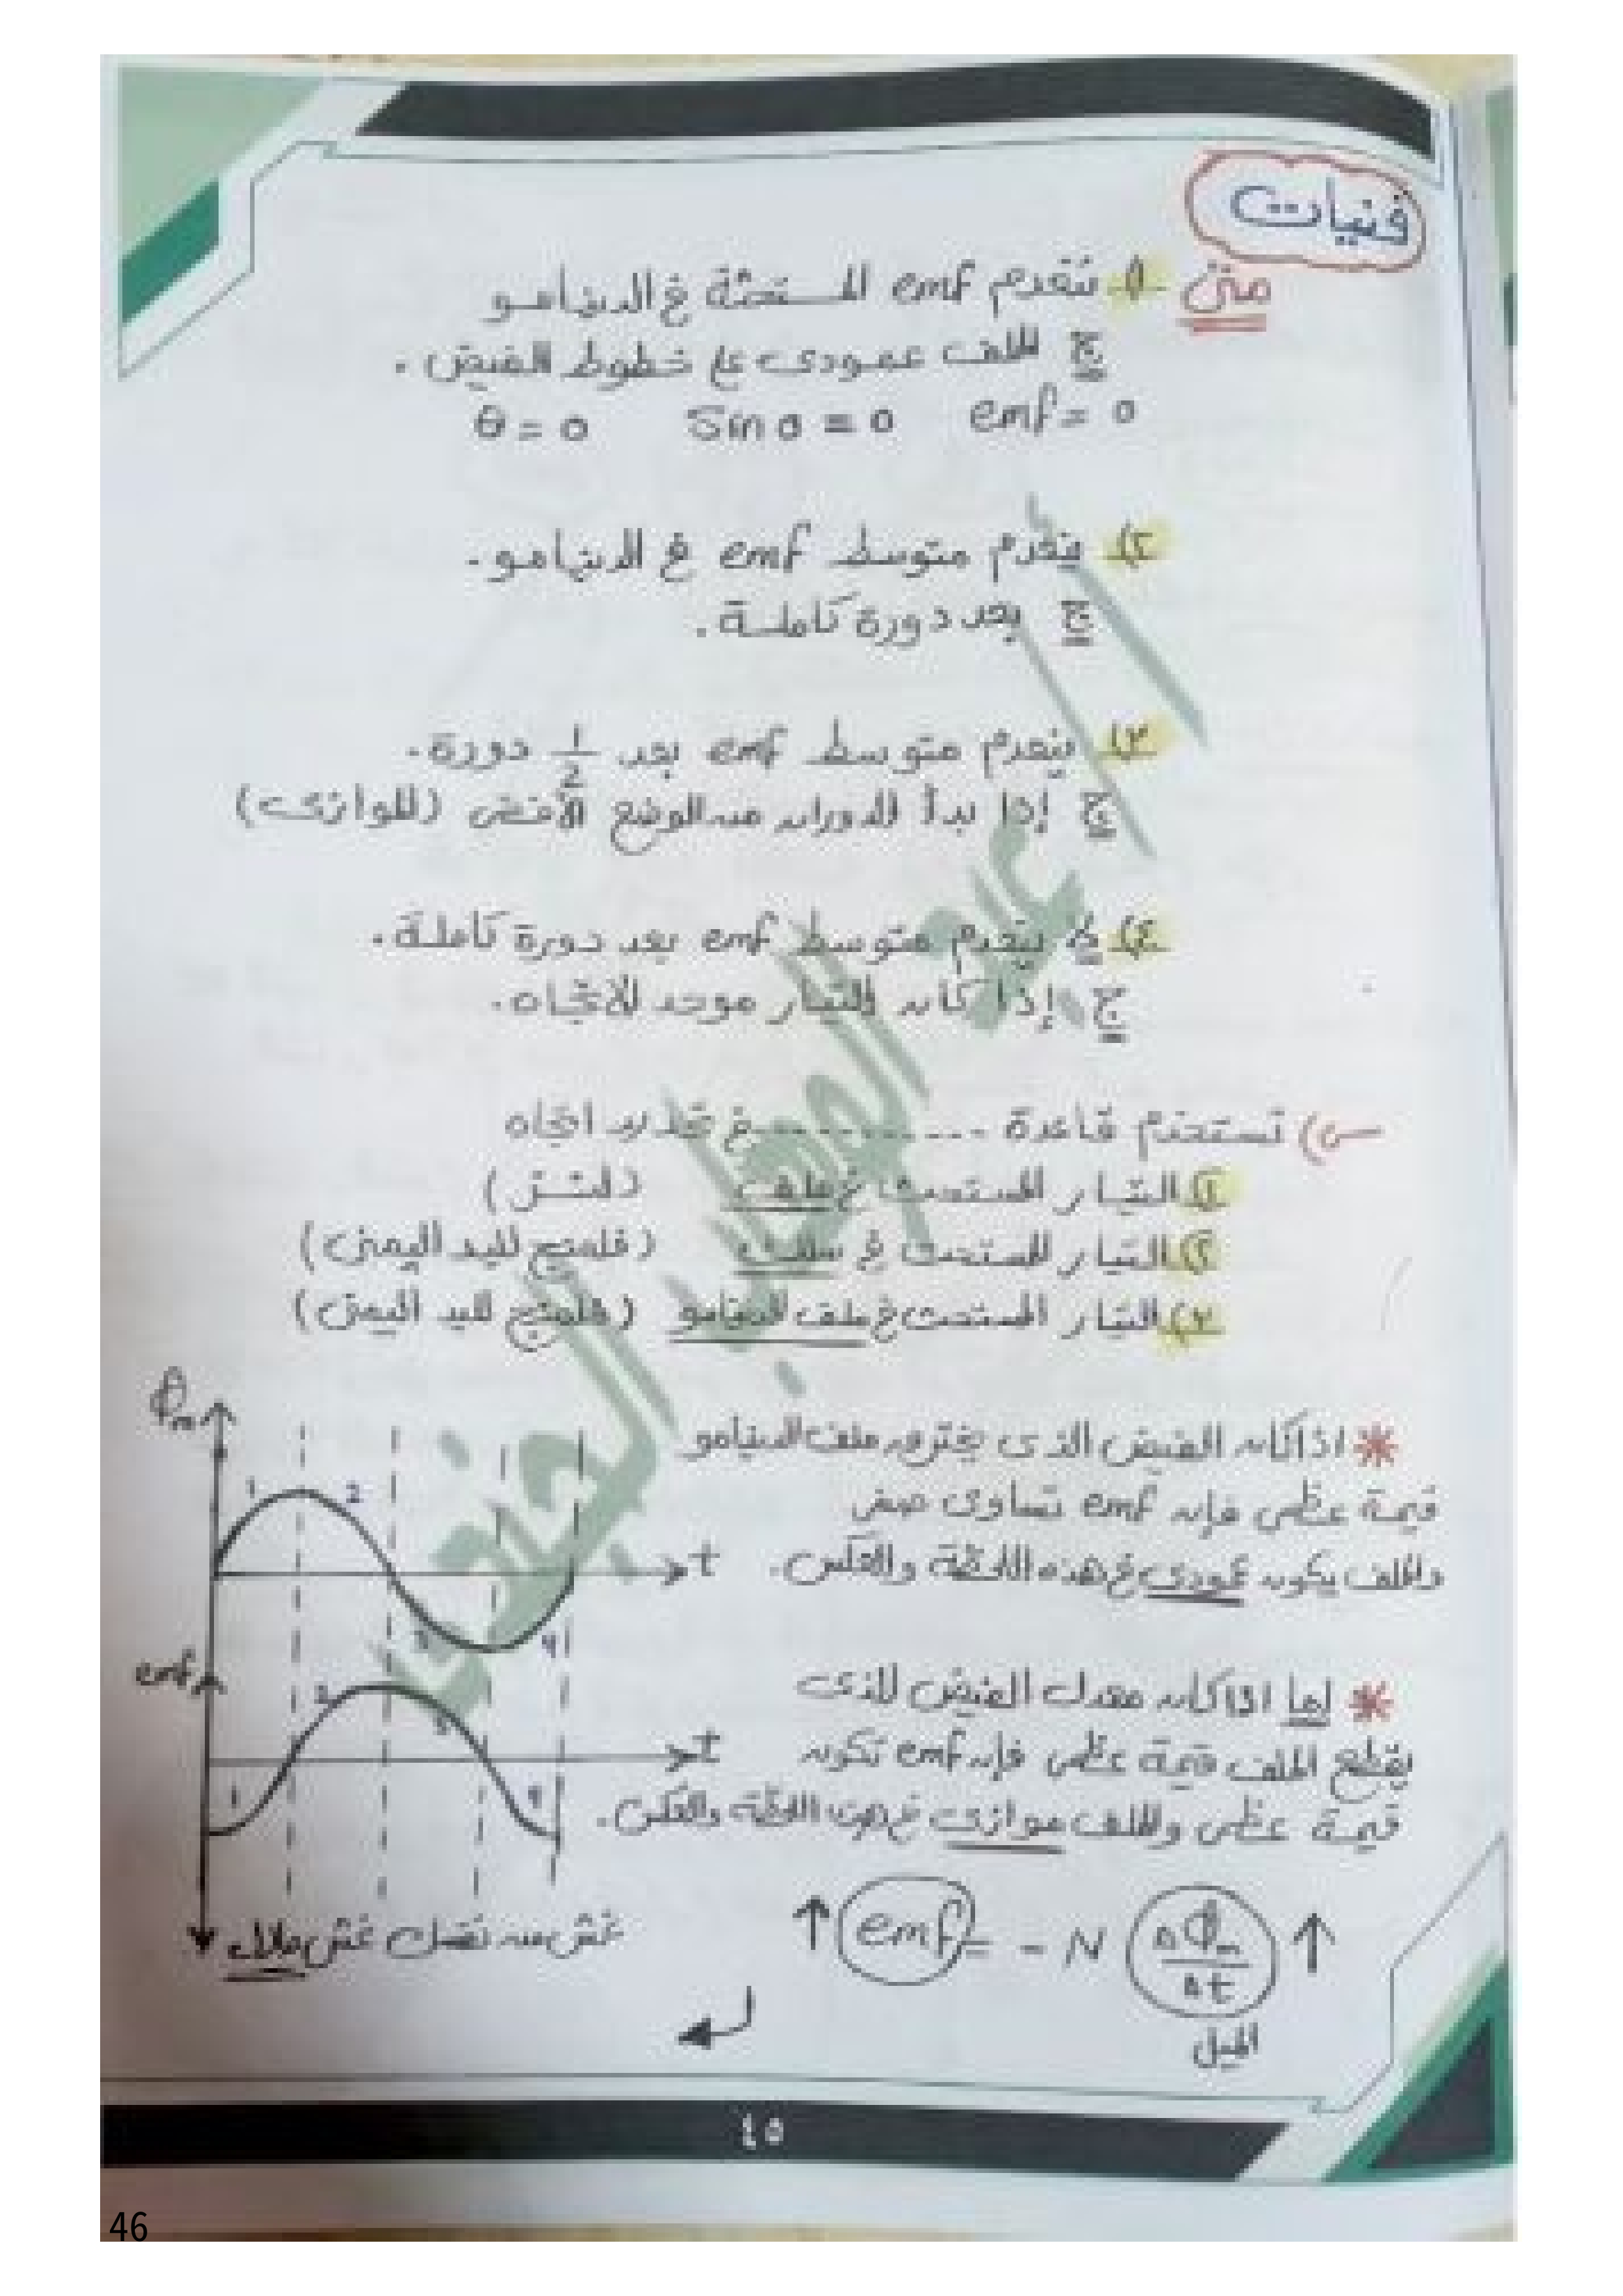 فنيات
متى ١) تنعدم emf المستحثة في الدينامو
ج الملف عمودى على خطوط الفيض .
θ = 0 Sin 0 = 0 emf = 0
٢) ينعدم متوسط emf في الدينامو .
ج بعد دورة كاملة .
٣) ينعدم متوسط emf بعد 1/2 دورة .
ج إذا بدأ الدوران من الوضع الأفقى (الموازى)
٤) لا ينعدم متوسط emf بعد دورة كاملة .
ج إذا كان التيار موحد الاتجاه .
س) تستخدم قاعدة ........... في تحديد اتجاه
١) التيار المستحث في ملف (لنتز)
٢) التيار المستحث في سلك (فلمنج لليد اليمنى)
٣) التيار المستحث في ملف الدينامو (فلمنج لليد اليمنى)
* اذا كان الفيض الذى يخترق ملف الدينامو
قيمة عظمى فإن emf تساوى صفر
والملف يكون عمودى في هذه اللحظة والعكس .
* أما اذا كان معدل الفيض الذى
يقطع الملف قيمة عظمى فإن emf تكون
قيمة عظمى والملف موازى في هذه اللحظة والعكس .
↑ emf = - N ΔΦm/Δt ↑
الميل
Φm
1 2 3 4
t
emf
1 2 3 4
t
غش من نفسك غش حلال
٤٥
46